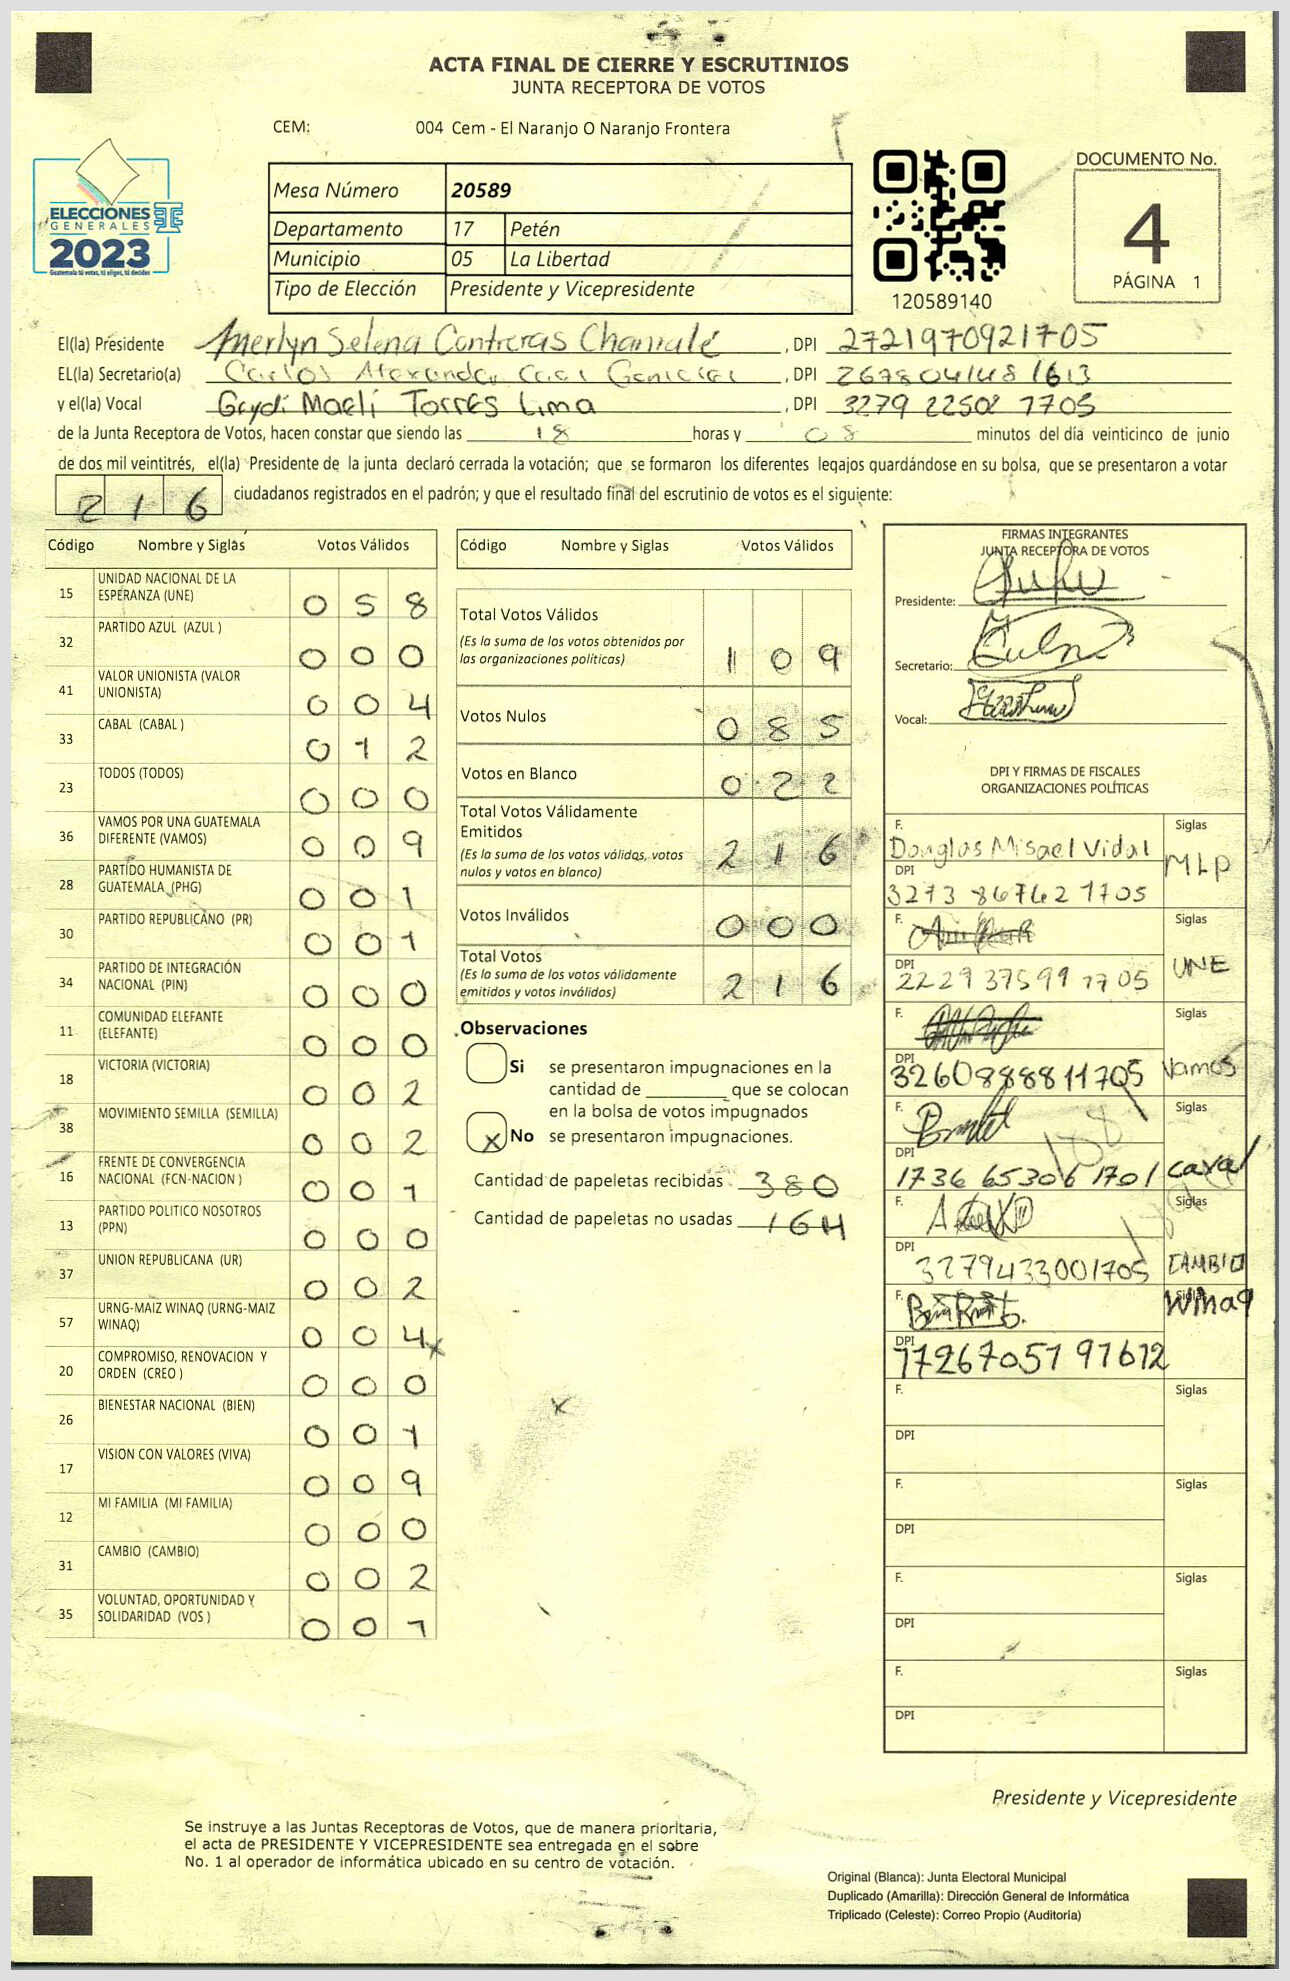 ACTA FINAL DE CIERRE Y ESCRUTINIOS
JUNTA RECEPTORA DE VOTOS
CEM: 004 Cem - El Naranjo O Naranjo Frontera
ELECCIONES
GENERALES
2023
Guatemala tú votas, tú eliges, tú decides
Mesa Número 20589
Departamento 17 Petén
Municipio 05 La Libertad
Tipo de Elección Presidente y Vicepresidente
120589140
DOCUMENTO No.
4
PÁGINA 1
El(la) Presidente Merlyn Selena Contreras Chamalé, DPI 2721970921705
EL(la) Secretario(a) Carlos, DPI 2678041481613
y el(la) Vocal Torres Lima, DPI 3279 22508 1705
de la Junta Receptora de Votos, hacen constar que siendo las 18 horas y 08 minutos del día veinticinco de junio
de dos mil veintitrés, el(la) Presidente de la junta declaró cerrada la votación; que se formaron los diferentes legajos guardándose en su bolsa, que se presentaron a votar
216 ciudadanos registrados en el padrón; y que el resultado final del escrutinio de votos es el siguiente:
Código Nombre y Siglas Votos Válidos
15 UNIDAD NACIONAL DE LA ESPERANZA (UNE) 058
32 PARTIDO AZUL (AZUL ) 000
41 VALOR UNIONISTA (VALOR UNIONISTA) 004
33 CABAL (CABAL ) 012
23 TODOS (TODOS) 000
36 VAMOS POR UNA GUATEMALA DIFERENTE (VAMOS) 009
28 PARTIDO HUMANISTA DE GUATEMALA (PHG) 001
30 PARTIDO REPUBLICANO (PR) 001
34 PARTIDO DE INTEGRACIÓN NACIONAL (PIN) 000
11 COMUNIDAD ELEFANTE (ELEFANTE) 000
18 VICTORIA (VICTORIA) 002
38 MOVIMIENTO SEMILLA (SEMILLA) 002
16 FRENTE DE CONVERGENCIA NACIONAL (FCN-NACION ) 001
13 PARTIDO POLITICO NOSOTROS (PPN) 000
37 UNION REPUBLICANA (UR) 002
57 URNG-MAIZ WINAQ (URNG-MAIZ WINAQ) 004
20 COMPROMISO, RENOVACION Y ORDEN (CREO ) 000
26 BIENESTAR NACIONAL (BIEN) 001
17 VISION CON VALORES (VIVA) 009
12 MI FAMILIA (MI FAMILIA) 000
31 CAMBIO (CAMBIO) 002
35 VOLUNTAD, OPORTUNIDAD Y SOLIDARIDAD (VOS ) 001
Código Nombre y Siglas Votos Válidos
Total Votos Válidos
(Es la suma de los votos obtenidos por
las organizaciones políticas) 109
Votos Nulos 085
Votos en Blanco 022
Total Votos Válidamente
Emitidos
(Es la suma de los votos válidos, votos
nulos y votos en blanco) 216
Votos Inválidos 000
Total Votos
(Es la suma de los votos válidamente
emitidos y votos inválidos) 216
Observaciones
Si se presentaron impugnaciones en la
cantidad de ________ que se colocan
en la bolsa de votos impugnados
x No se presentaron impugnaciones.
Cantidad de papeletas recibidas 380
Cantidad de papeletas no usadas 164
FIRMAS INTEGRANTES
JUNTA RECEPTORA DE VOTOS
Presidente:
Secretario:
Vocal:
DPI Y FIRMAS DE FISCALES
ORGANIZACIONES POLÍTICAS
F. Douglas Misael Vidal Siglas MLP
DPI 3273 86762 1705
F. Siglas UNE
DPI 2229 37599 1705
F. Siglas Vamos
DPI 3260888811705
F. Siglas caval
DPI 1736 65306 1701
F. Siglas CAMBIO
DPI 3279433001705
F. Siglas Winaq
DPI 1726705791612
F. Siglas
DPI
F. Siglas
DPI
F. Siglas
DPI
F. Siglas
DPI
Presidente y Vicepresidente
Se instruye a las Juntas Receptoras de Votos, que de manera prioritaria,
el acta de PRESIDENTE Y VICEPRESIDENTE sea entregada en el sobre
No. 1 al operador de informática ubicado en su centro de votación.
Original (Blanca): Junta Electoral Municipal
Duplicado (Amarilla): Dirección General de Informática
Triplicado (Celeste): Correo Propio (Auditoría)